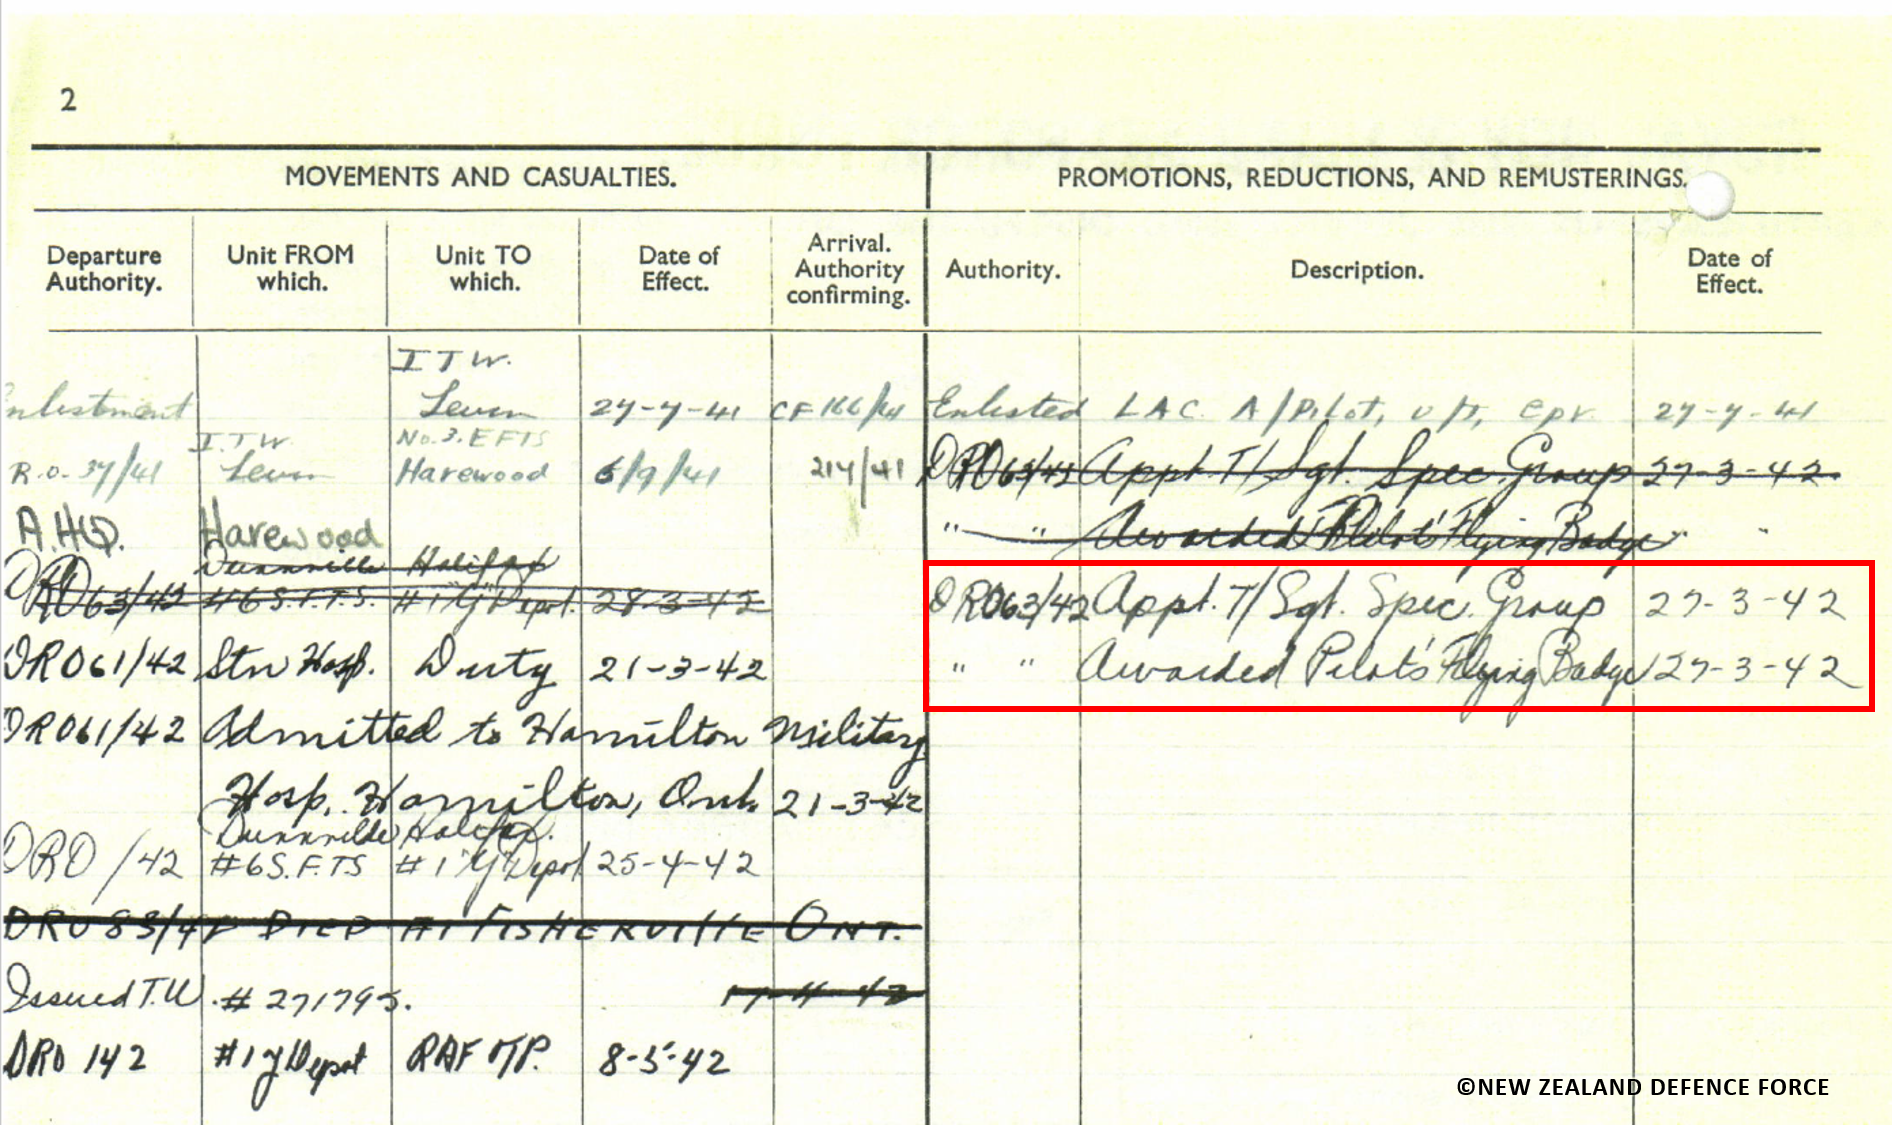 2
MOVEMENTS AND CASUALTIES.
PROMOTIONS, REDUCTIONS, AND REMUSTERINGS.
Departure Authority.
Unit FROM which.
Unit TO which.
Date of Effect.
Arrival. Authority confirming.
Authority.
Description.
Date of Effect.
I T W.
nlistment Levin 27-7-41 CF 166/41
I.T.W. No. 3. EFTS
R.O. 37/41 Levin Harewood 6/9/41 214/41
A.H.Q. Harewood
Dunnville Halifax
DRO63/42 #6 S.F.T.S. #1 "Y" Depot 28-3-42
DRO61/42 Stn Hosp. Duty 21-3-42
DRO61/42 Admitted to Hamilton Military
Hosp. Hamilton, Ont. 21-3-42
Dunnville Halifax.
DRO /42 #6 S.F.T.S #1 "Y" Depot 25-4-42
DRO 83/42 DIED AT FISHERVILLE ONT.
Issued T.W. # 271795.
DRO 142 #1 Y Depot RAF T.P. 8-5-42
Enlisted LAC. A/Pilot, u/t, 27-7-41
DRO63/42 Appt. T/Sgt. Spec. Group 27-3-42
" " Awarded Pilot's Flying Badge " "
DRO63/42 Appt. T/Sgt. Spec. Group 27-3-42
" " Awarded Pilot's Flying Badge 27-3-42
©NEW ZEALAND DEFENCE FORCE